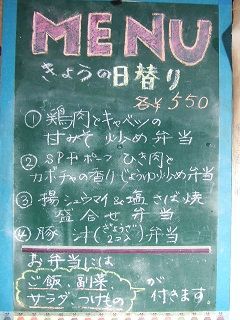 MENU
きょうの日替り
各¥550
①鶏肉とキャベツの
甘みそ炒め弁当
②SPチポーフ ひき肉と
カボチャの香りじょうゆ炒め弁当
③揚シュウマイ&塩さば焼
盛合せ弁当
④豚汁(ぎょうざ2コ入)弁当
お弁当には
ご飯、副菜、
サラダ、つけもの
が付きます。